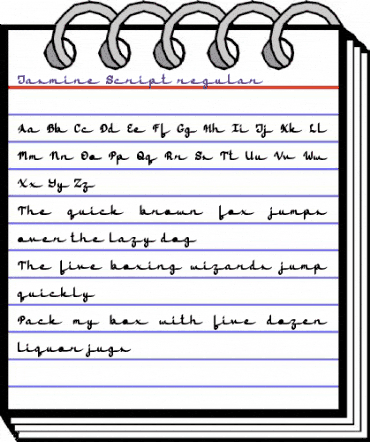 Jasmine Script regular
Aa Bb Cc Dd Ee Ff Gg Hh Ii Jj Kk Ll
Mm Nn Oo Pp Qq Rr Ss Tt Uu Vv Ww
Xx Yy Zz
The quick brown fox jumps
over the lazy dog
The five boxing wizards jump
quickly
Pack my box with five dozen
liquor jugs